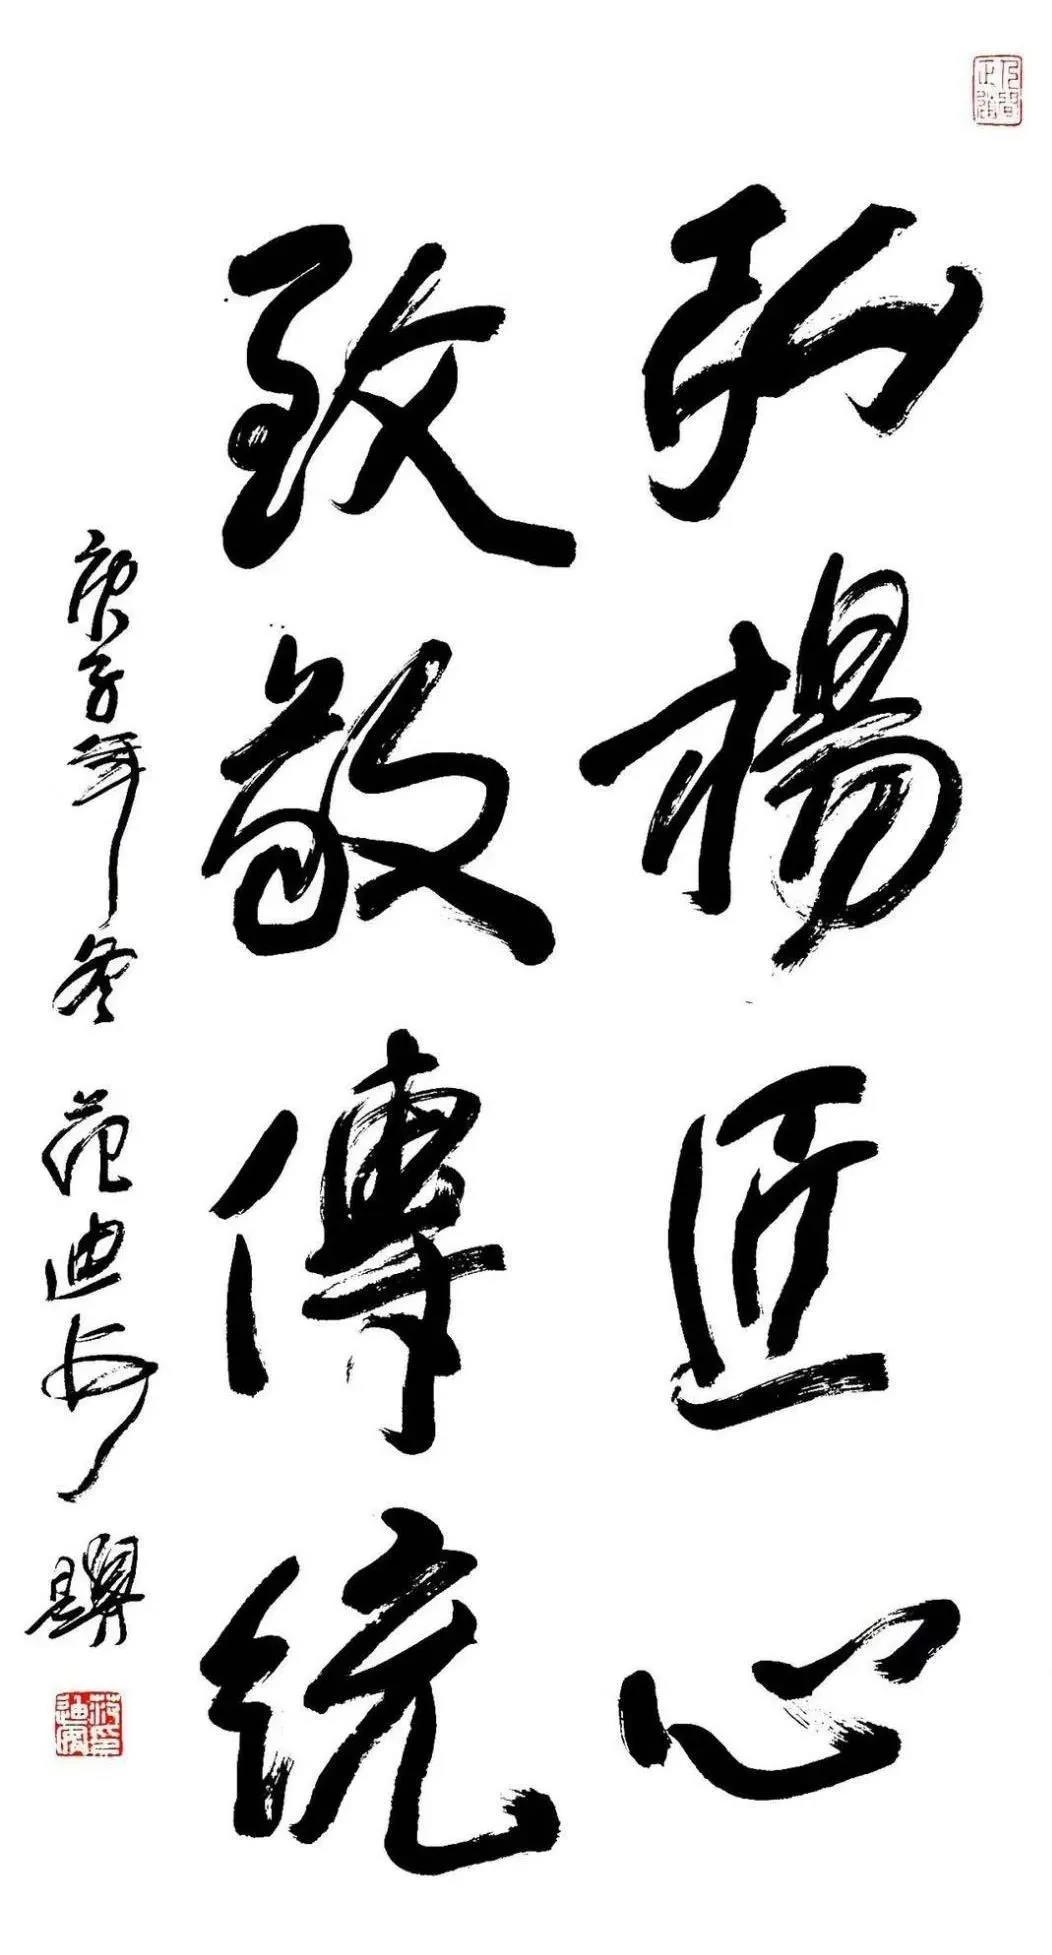 弘揚匠心
致敬傳統
庚子年冬 范迪安題